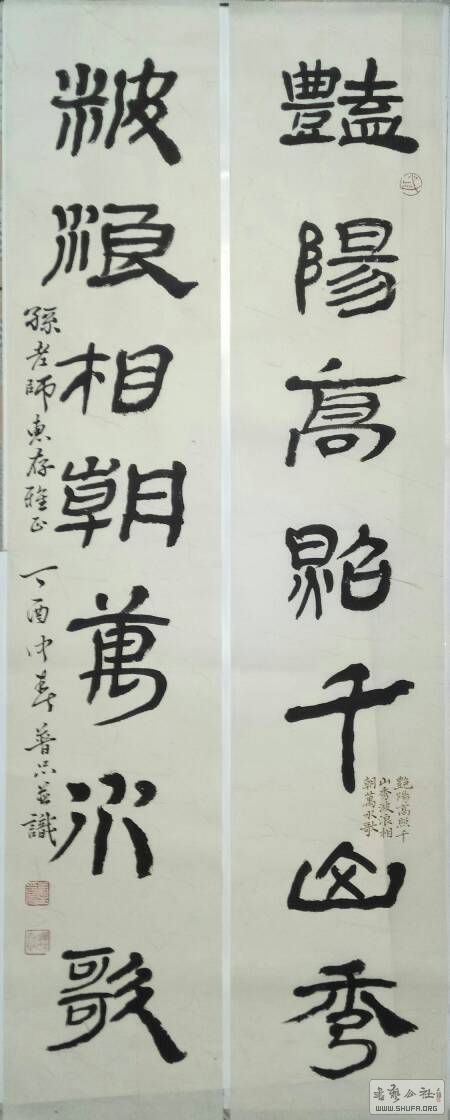 豔陽高照千山秀
艷陽高照千
山秀波浪相
朝萬水歌
波浪相朝萬水歌
孫老師惠存雅正 丁酉仲春普só並識
書藝公社
WWW.SHUFA.ORG